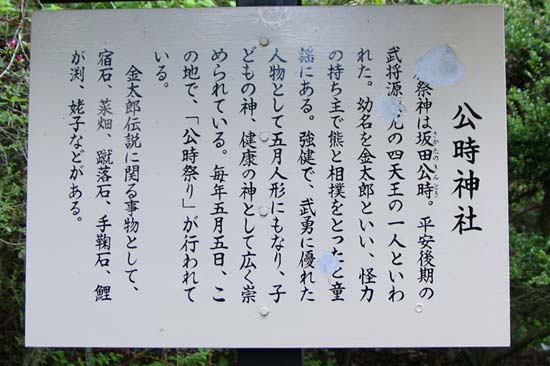 公時神社
祭神は坂田公時。平安後期の
さかたのきんとき
武将源 光の四天王の一人といわ
れた。幼名を金太郎といい、怪力
の持ち主で熊と相撲をとったと童
謡にある。強健で、武勇に優れた
人物として五月人形にもなり、子
どもの神、健康の神として広く崇
められている。毎年五月五日、こ
の地で、「公時祭り」が行われて
いる。
金太郎伝説に関る事物として、
宿石、菜畑、蹴落石、手鞠石、鯉
が渕、姥子などがある。